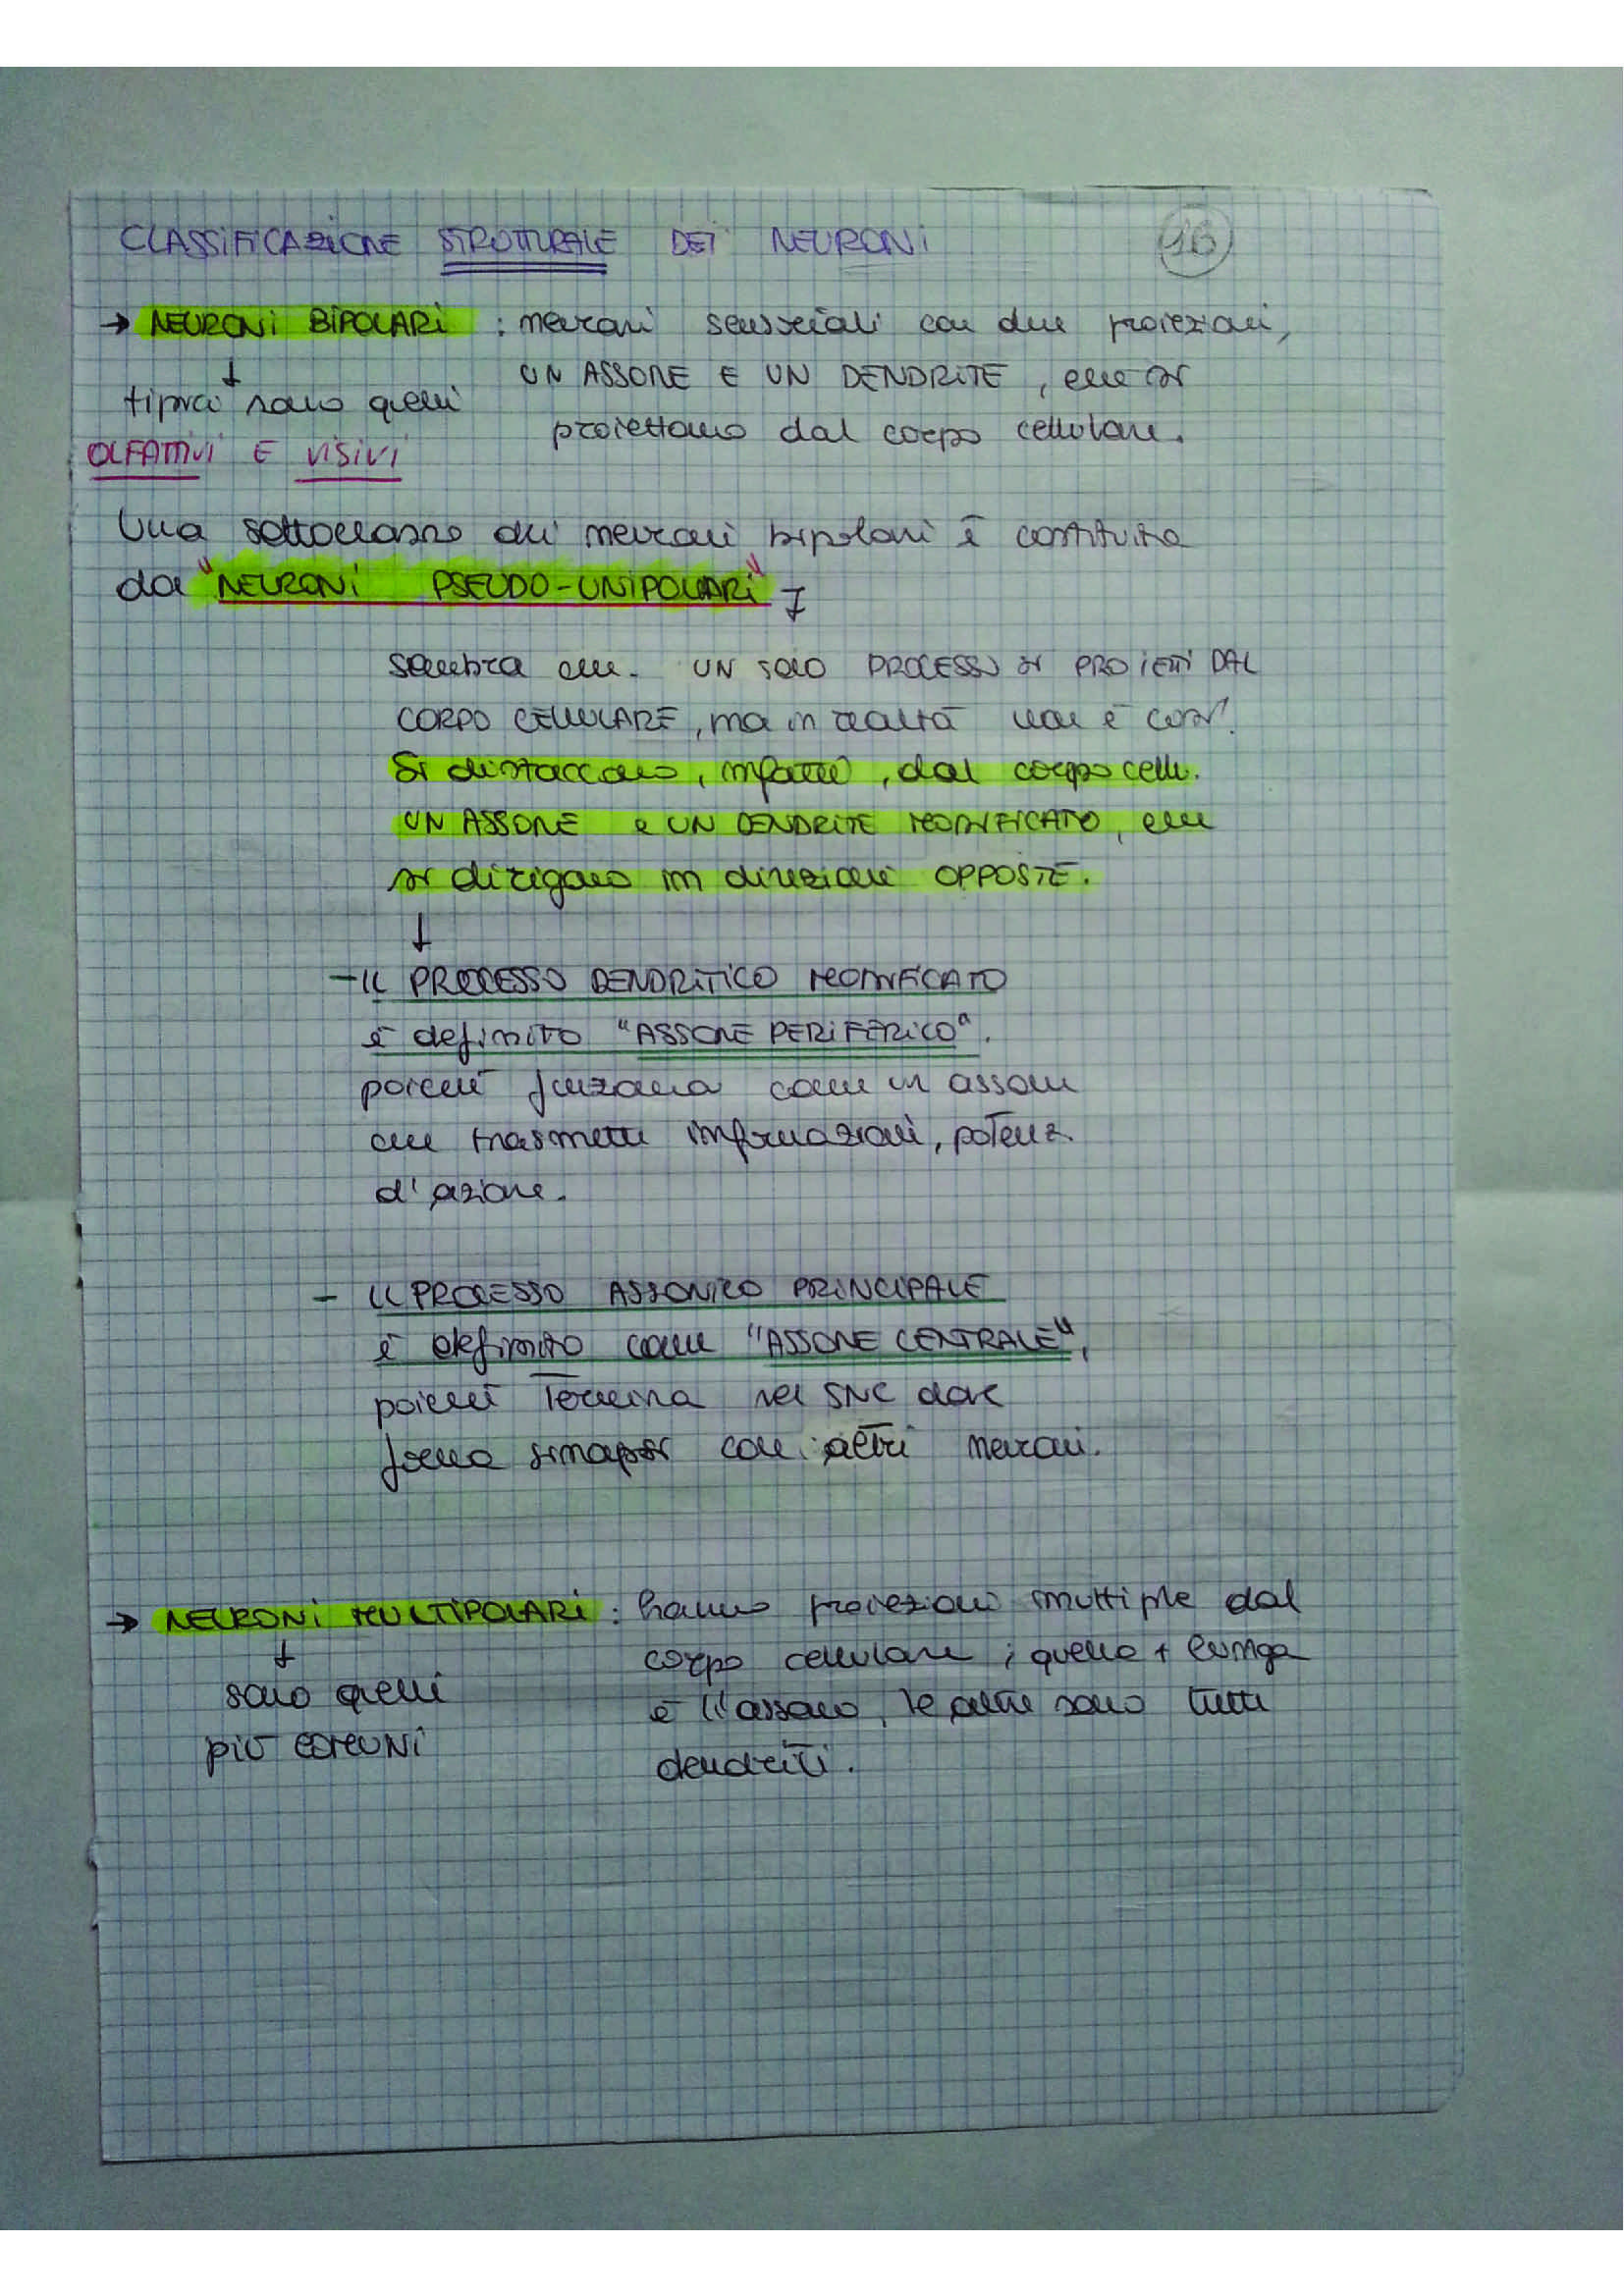 CLASSIFICAZIONE STRUTTURALE DEI NEURONI
16
→ NEURONI BIPOLARI : neuroni sensoriali con due proiezioni,
UN ASSONE E UN DENDRITE, che si
proiettano dal corpo cellulare.
↓
tipici sono quelli
OLFATTIVI E VISIVI
Una sottoclasse dei neuroni bipolari è costituita
da "NEURONI PSEUDO-UNIPOLARI"
sembra che UN SOLO PROCESSO si PROIETTI DAL
CORPO CELLULARE, ma in realtà non è così!
Si distaccano, infatti, dal corpo cell.
UN ASSONE e UN DENDRITE MODIFICATO, che
si dirigono in direzioni OPPOSTE.
↓
- IL PROCESSO DENDRITICO MODIFICATO
è definito "ASSONE PERIFERICO".
poiché funziona come un assone
che trasmette informazioni, potenz.
d'azione.
- IL PROCESSO ASSONICO PRINCIPALE
è definito come "ASSONE CENTRALE",
poiché Termina nel SNC dove
forma sinapsi con altri neuroni.
→ NEURONI MULTIPOLARI : hanno proiezioni multiple dal
corpo cellulare; quella + lunga
è l'assone, le altre sono tutti
dendriti.
↓
sono quelli
più COMUNI